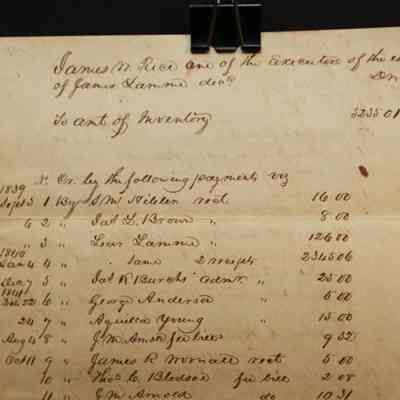 James W. Rice one of the executors of the es
of James Lamme decd
To amt of Inventory 3235 01
Cr. by the following payments viz
1839
Sept 3 1 By S. M. rect. 16 00
6 2 " Jas L. Brown " 8 00
" 3 " Levi Lamme " 126 00
1840
Jan 4 4 " " same 2 receipts 2345 06
5 " Jas R Burchs' admr. " 25 00
1841
Feb 22 6 " George Anderson " 5 00
24 7 " Aquilla Young " 15 00
Aug 4 8 " J. M. fee bill 9 32
Oct 11 9 " James R Wornall rect 5 00
10 " Thos. C. Bledsoe fee bill 2 08
11 " J M Arnold do 10 31